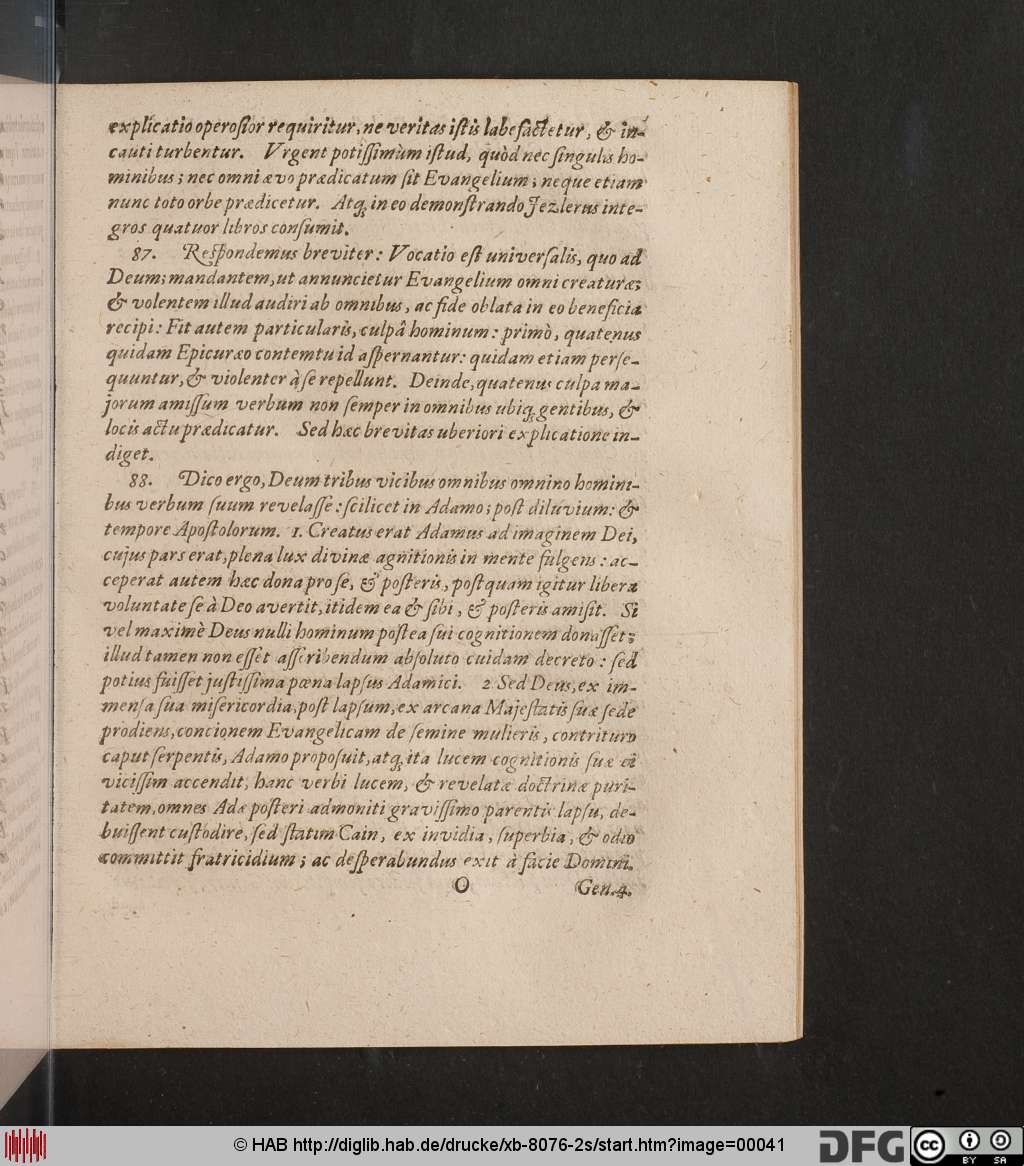 explicatio operosior requiritur, ne veritas istis labefactetur, & in-
cauti turbentur. Vrgent potissimùm istud, quòd nec singulis ho-
minibus; nec omni ævo prædicatum sit Evangelium; neque etiam
nunc toto orbe prædicetur. Atq; in eo demonstrando Jezlerus inte-
gros quatuor libros consumit.
87. Respondemus breviter: Vocatio est universalis, quo ad
Deum; mandantem, ut annuncietur Evangelium omni creaturæ;
& volentem illud audiri ab omnibus, ac fide oblata in eo beneficia
recipi: Fit autem particularis, culpâ hominum: primò, quatenus
quidam Epicuræo contemtu id aspernantur: quidam etiam perse-
quuntur, & violenter à se repellunt. Deinde, quatenus culpa ma-
jorum amissum verbum non semper in omnibus ubiq; gentibus, &
locis actu prædicatur. Sed hæc brevitas uberiori explicatione in-
diget.
88. Dico ergo, Deum tribus vicibus omnibus omnino homini-
bus verbum suum revelasse: scilicet in Adamo; post diluvium: &
tempore Apostolorum. 1. Creatus erat Adamus ad imaginem Dei,
cujus pars erat, plena lux divinæ agnitionis in mente fulgens: ac-
ceperat autem hæc dona pro se, & posteris, postquam igitur libera
voluntate se à Deo avertit, itidem ea & sibi, & posteris amisit. Si
vel maximè Deus nulli hominum postea sui cognitionem donasset;
illud tamen non esset asscribendum absoluto cuidam decreto: sed
potius fuisset justissima pœna lapsus Adamici. 2 Sed Deus, ex im-
mensa sua misericordia, post lapsum, ex arcana Majestatis suæ sede
prodiens, concionem Evangelicam de semine mulieris, contrituro
caput serpentis, Adamo proposuit, atq; ita lucem cognitionis suæ ei
vicissim accendit, hanc verbi lucem, & revelatæ doctrinæ puri-
tatem, omnes Adæ posteri admoniti gravissimo parentis lapsu, de-
buissent custodire, sed statim Cain, ex invidia, superbia, & odio
committit fratricidium; ac desperabundus exit à facie Domini.
O Gen. 4.
© HAB http://diglib.hab.de/drucke/xb-8076-2s/start.htm?image=00041
DFG
cc BY SA